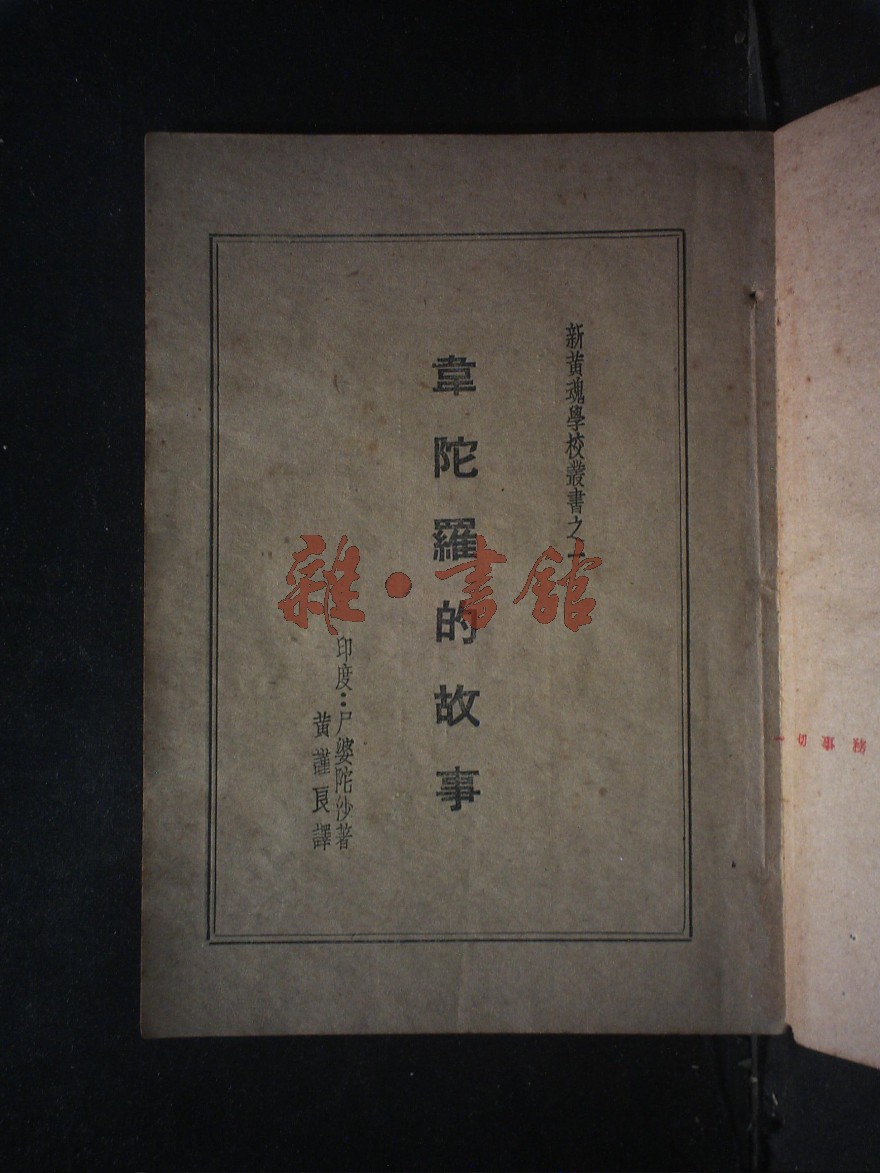 新黃魂學校叢書之一
韋陀羅的故事
印度:尸婆陀沙著
黃謹良譯
雜·書舘
一切事務